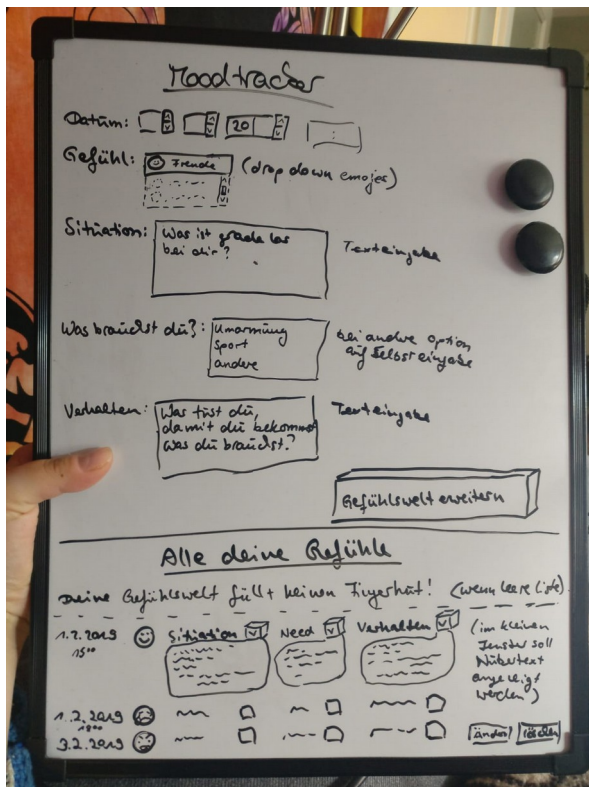 Moodtracker
Datum: 20 :
Gefühl: Freude (drop down emojes)
Situation: Was ist grade los
bei dir?
Texteingabe
Was brauchst du?: Umarmung
Sport
andere
bei andere Option
auf Selbsteingabe
Verhalten: Was tust du,
damit du bekommst
was du brauchst?
Texteingabe
Gefühlswelt erweitern
Alle deine Gefühle
Deine Gefühlswelt füllt keinen Fingerhut! (wenn leere Liste)
1.2.2019 Situation Need Verhalten
15⁰⁰
(im kleinen
Fenster soll
angezeigt
werden)
1.2.2019
18⁰⁰
3.2.2019 ändern löschen